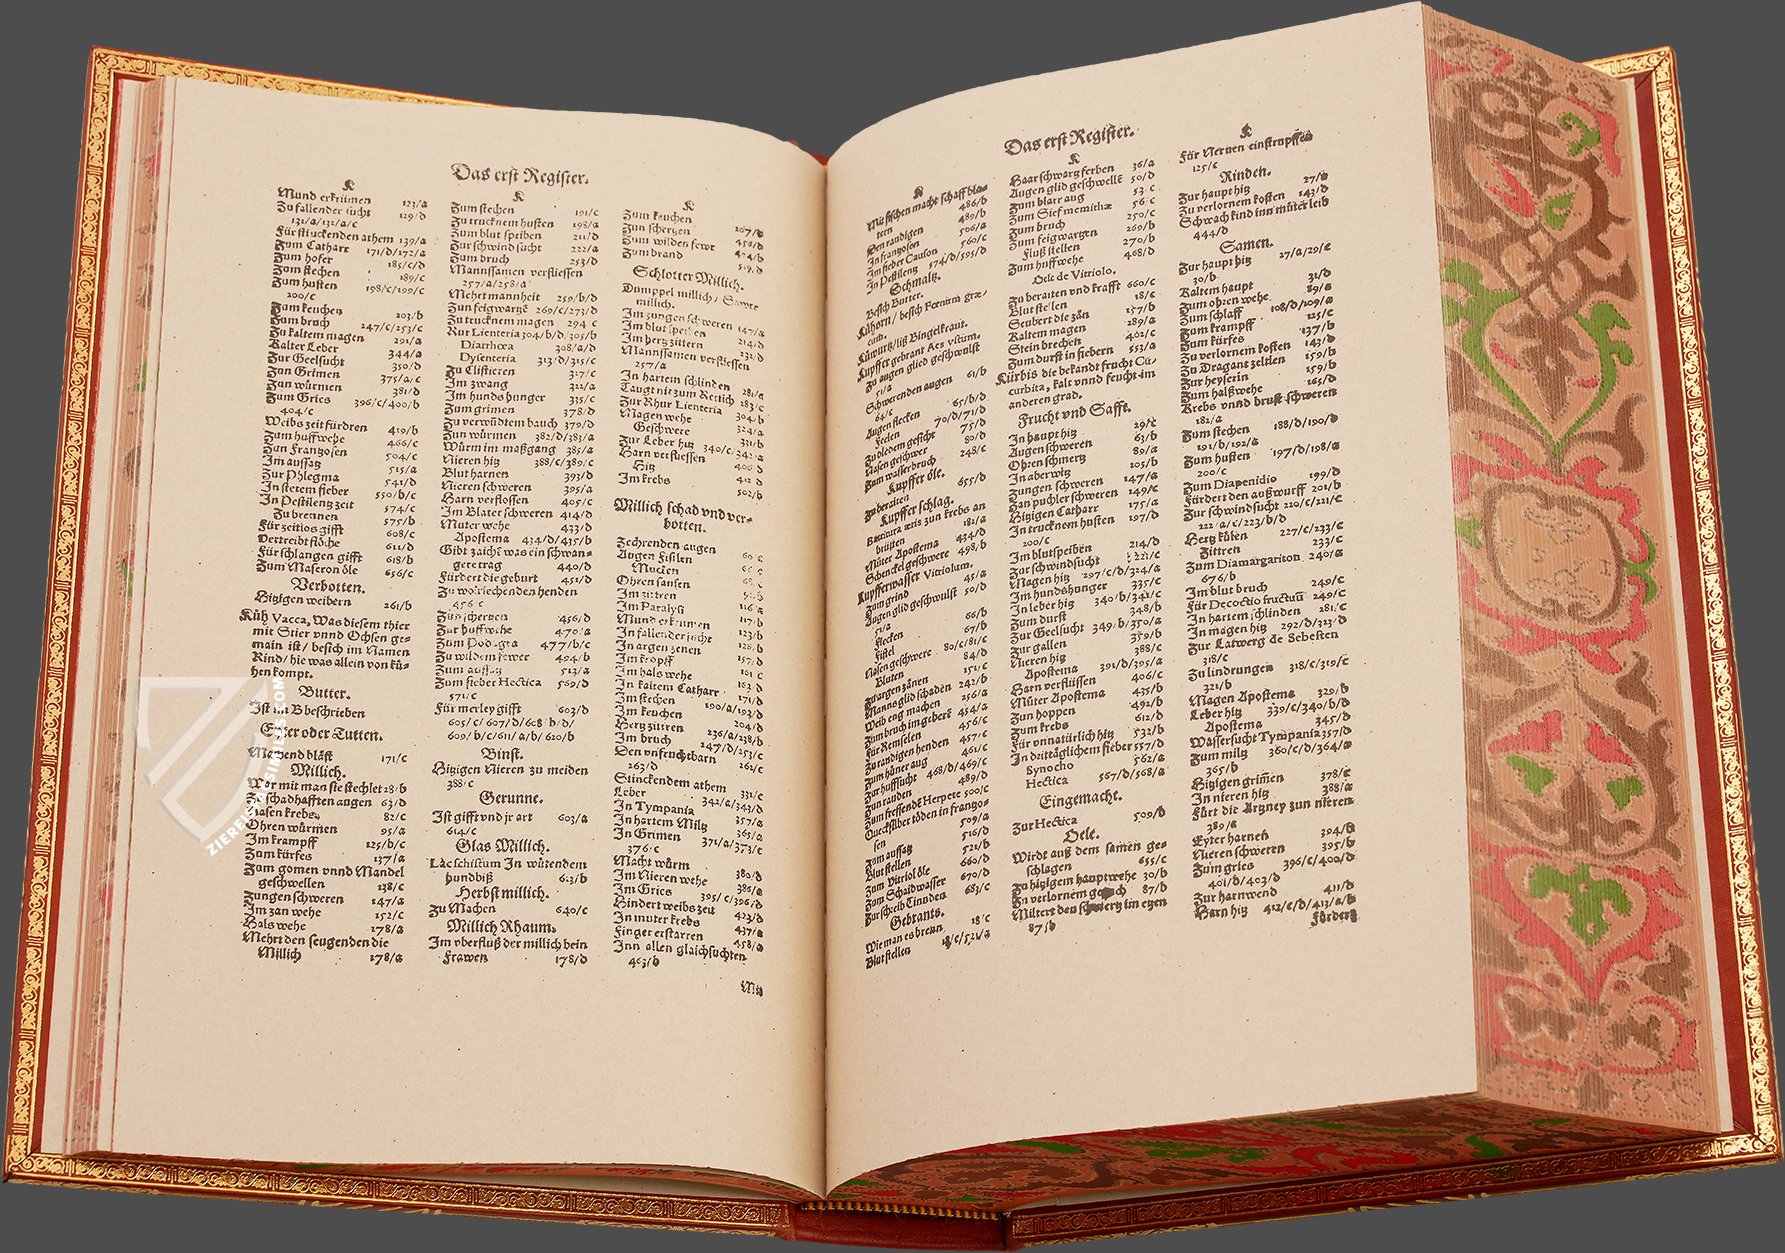 Das erst Register.
K
Mund erkrümen 123/a
Zu fallender sucht 129/d
131/a/132/a/c
Für stinckenden athem 139/a
Zum Catharr 171/d/172/a
Zum hofer 185/c/d
Zum stechen 189/c
Zum husten 198/c/199/c
200/c
Zum keuchen 203/b
Zum bruch 247/c/253/c
Zu kaltem magen 291/a
Kalter Leber 344/a
Zur Geelsucht 350/d
Zun Grimen 375/a/c
Zun würmen 381/d
Zum Gries 396/c/400/b
404/c
Weibs zeit fürdren 419/b
Zum huffwehe 466/c
Zun Frantzosen 504/c
Im aussatz 515/a
Zur Phlegma 541/d
In stetem fieber 550/b/c
In Pestilentz zeit 574/c
Zu brennen 575/b
Für zeitlos gifft 608/c
Vertreibt flöhe 611/d
Für schlangen gifft 618/b
Zum Maseron öle 656/c
Verbotten.
Hitzigen weibern 261/b
Küh Vacca, Was diesem thier
mit Stier vnnd Ochsen ge-
main ist/ besich im Namen
Rind/ hie was allein von kü-
hen kompt.
Butter.
Ist im B beschrieben
Euter oder Tutten.
Magend bläst 171/c
Millich.
Wor mit man sie stechlet 28/b
Zu schadhafften augen 63/d
Nasen krebs 82/c
Ohren würmen 95/a
Im krampff 125/b/c
Zum kürfes 137/a
Zum gomen vnnd Mandel
geschwellen 138/c
Zungen schweren 147/a
Im zan wehe 152/c
Hals wehe 178/a
Mehrt den seugenden die
Millich 178/a
K
Zum stechen 191/c
Zu trucknem husten 198/a
Zum blut speiben 211/d
Zur schwindsucht 222/a
Zum bruch 253/d
Mannssamen verfliessen
257/a/258/a
Mehrt mannheit 259/b/d
Zun feigwartzen 269/c/273/d
Zu trucknem magen 294 c
Rur Lienteria 304/b/d. 305/b
Diarrhœa 308/a/d
Dysenteria 313/d/315/c
Zu Clistieren 317/c
Im zwang 322/a
Im hunds hunger 335/c
Zum grimen 378/d
Zu verwüstem bauch 379/d
Zun würmen 382/d/383/a
Würm im maßgang 385/a
Nieren hitz 388/c/389/c
Blut harnen 393/d
Nieren schweren 395/a
Harn verstossen 405/c
Im Blater schweren 414/d
Muter wehe 433/d
Apostema 434/d/435/b
Gibt zaichē was ein schwan-
gere trag 440/d
Fürdert die geburt 451/d
Zu wolriechenden henden
456 c
Zun schertzen 456/d
Zur huffwehe 470/a
Zum Podagra 477/b/c
Zu wildem fewer 494/b
Zum aussatz 513/a
Zum fieber Hectica 569/d
571/c
Für merley gifft 603/d
605/c/607/d/608 b/d/
609/b/c/611/a/b/620/b
Binst.
Hitzigen Nieren zu meiden
388/c
Gerunne.
Ist gifft vnd jr art 603/a
614/c
Glas Millich.
Lac schistum In wütendem
hundbiß 613/b
Herbst millich.
Zu Machen 640/c
Millich Rhaum.
Im vberfluß der millich bein
Frawen 178/d
K
Zum keuchen
Zum schertzen 267/b
Zum wilden fewr
Zum brand
Schlotter Millich.
Dumppel millich/ Sawer
millich.
Im zungen schweren 147/a
Im blut speiben 214/d
Im hertz zittern 232/d
Mannssamen verfliessen
257/a
In hartem schlinden 281/c
Taugt nie zum Rettich 283/c
Zur Rhur Lienteria 304/b
Magen wehe 324/a
Geschwere 331/b
Zur Leber hitz 340/c/342/a
Harn verfliessen 406 d
Hitz 412 d
Im krebs 502/b
Millich schad vnd ver-
botten.
Zechrenden augen
Augen Fistlen
Mucken
Ohren sausen
Im zittren
Im Paralysi 116/a
Mund erkrumen 117/b
In fallender sucht 123/b
In argen zenen 128/b
Im kropff 157/d
Im hals wehe 161 c
In kaltem Catharr 163 d
Zum stechen 171/d
Im keuchen 190/a/193/d
Hertz zittren 204/d
Im bruch 236/a/238/b
Den vnfruchtbarn 247/d/253/c
263/d 262/c
Stinckendem athem 331/c
Leber 342/a/343/d
In Tympania 357/a
In hartem Miltz 365/a
In Grimen 371/a/373/c
376/c
Macht würm 380/d
Im Nieren wehe 386/a
Im Gries 395/c/396/d
Hindert weibs zeit 423/d
In muter krebs 437/a
Finger erstarren 458/a
Inn allen glaichsuchten
463/b
Mit
Das erst Register.
K
Mit fischen macht schaff bla-
tern 486/b
Den raudigen 489/b
In frantzosen 506/a
Im fieber Causon 560/c
In Pestilentz 574/d/595/d
Schmaltz.
Besich Butter.
Kühorn/ besich Fœnum græ-
cum.
Kuwurtz/ liß Bingelkraut.
Kupffer gebrant Aes vstum.
Zu augen glied geschwulst
51/a
Schwerenden augen 61/b
64/c
Augen flecken 65/b/d
Feelen 70/d/71/d
Zu blödem gesicht 75/d
Nasen geschwer 80/d
Zum wasserbruch 248/c
Kupffer öle.
Zu beraiten 655/d
Kupffer schlag.
Batitura æris zun krebs an
brüsten 181/a
Müter Apostema 434/d
Schenckel geschwere 498/b
Kupfferwasser Vitriolum.
Zum grind 45/a
Augen glid geschwulst 50/d
51/a
Flecken 66/b
Fistel 67/b
Nasen geschwere 80/c/81/c
Bluten 84/d
In argen zänen 151/c
Manns glid schaden 242/b
Weib eng machen 256/a
Zum bruch im geberē 454/a
Für Remselen 456/c
Zu raudigen henden 457/c
Zum hüner aug 461/c
Zur huffsucht 468/d/469/c
Zun rauden 489/d
Zum fressendē Herpete 500/c
Quecksilber töden in frantzo-
sen 509/a
Zum aussatz 516/d
Blut stellen 521/b
Zum Vitriol öle 660/d
Zum Schaidwasser 670/d
Zur schreib Tinnden 683/c
Gebrants.
Wie man es brenn 18/c
Blut stellen 18/c/521/a
K
Haar schwartz ferben 36/a
Augen glid geschwellē 50/d
Zum blarr aug 53 c
Zum Sief memithæ 56 c
Zum bruch 250/c
Zum feigwartzen 269/b
Fluß stellen 270/b
Zum huffwehe 468/d
Oele de Vitriolo.
Zu beraiten vnd krafft 660/c
Blut stellen 18/c
Seubert die zän 157/b
Kaltem magen 289/a
Stein brechen 402/c
Zum durst in fiebern 553/a
Kürbis die bekandt frucht Cu-
curbita, kalt vnnd feucht im
anderen grad.
Frucht vnd Safft.
In haupt hitz 29/c
Augen schweren 63/b
Ohren schmertz 89/a
In aberwitz 105/b
Zungen schweren 147/a
Zan puchler schweren 149/c
Hitzigen Catharr 175/c
In trucknem husten 197/d
200/c
Im blutspeiben 214/d
Zur schwindsucht 221/c
Magen hitz 297/c/d/324/a
Im hundshunger 335/c
In leber hitz 340/b/342/c
Zum durst 348/b
Zur Geelsucht 349/b/350/a
Zur gallen 359/b
Nieren hitz 388/c
Apostema 391/d/395/a
Harn verflüssen 406/c
Müter Apostema 435/b
Zun hoppen 491/b
Zum krebs 612/d
Für vnnatürlich fiber 532/b
In drittäglichem fieber 557/d
Synocho 562/a
Hectica 567/d/568/a
Eingemacht.
Zur Hectica 509/b
Oele.
Wirdt auß dem samen ge-
schlagen 655/c
Zu hitzigem hauptwehe 30/b
Zu verlornem geruch 87/b
Miltert den schmertz im eyen
87/b
K
Für Neruen einstrupffen
125/c
Rinden.
Zur haupt hitz 27/a
Zu verlornem kosten 143/d
Schwach kind inn müter leib
444/d
Samen.
Zur haupt hitz 27/a/29/c
30/b
Kaltem haupt 31/d
Zum ohren wehe 89/a
Zum schlaff 108/d/109/a
Zum krampff 125/c
Zum kürfes 137/b
Zu verlornem kosten 143/d
Zu Dragant zeltlen 159/b
Zur heyserin 159/b
Zum halßwehe 165/d
Krebs vnnd brust schweren
182/a
Zum stechen 188/d/190/d
191/b/192/a
Zum husten 197/d/198/a
200/c
Zum Diapenidio 199/d
Fürdert den außwurff 201/b
Zur schwindsücht 220/c/221/c
222 a/c/223/b/d
Hertz küben 227/c/233/c
Zittren 233/c
Zum Diamargariton 240/a
676/b
Im blut bruch 249/c
Für Decoctio fructuū 249/c
In hartem schlinden 281/c
In magen hitz 292/d/313/d
Zur Latwerg de Sebesten
318/c
Zu lindrungen 318/c/319/c
321/b
Magen Apostema 329/b
Leber hitz 339/c/340/b/d
Apostema 345/d
Wassersucht Tympania 357/d
Zum miltz 360/c/d/364/a
365/b
Hitzigen grimen 378/c
In nieren hitz 388/a
Fürt die Artzney zun nieren
389/a
Eyter harnen 394/b
Nieren schweren 395/b
Zum gries 396/c/400/d
401/d/403/d
Zur harnwend 411/d
Harn hitz 412/c/d/413/a/b
Fürdert
ZIEREIS FACSIMILES.COM